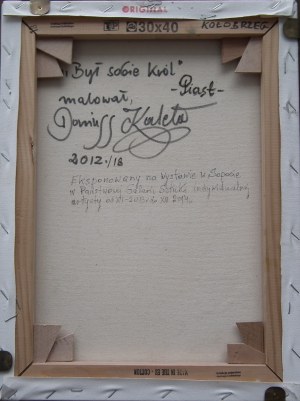 ORIGINAL
30x40
KOŁOBRZEG
"Był sobie Król"
-Piast-
malował,
Dariusz Kaleta
2012./16
Eksponowany na wystawie w Sopocie
w Państwowej Galerii Sztuki
artysty